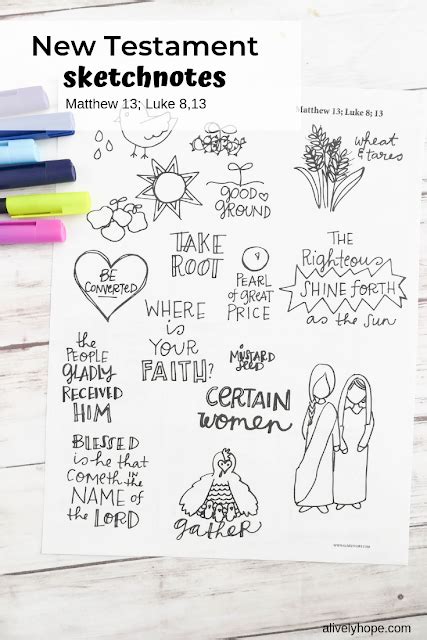 New Testament
sketchnotes
Matthew 13; Luke 8,13
Matthew 13; Luke 8; 13
wheat
& tares
GOOD
GROUND
BE
CONVERTED
TAKE
ROOT
PEARL
of GREAT
PRICE
THE
Righteous
SHINE FORTH
as the SUN
WHERE
is
YOUR
FAITH?
the
PEOPLE
GLADLY
RECEIVED
HIM
MUSTARD
SEED
CERTAIN
women
BLESSED
is he that
COMETH IN
THE
NAME of
the LORD
gather
alivelyhope.com